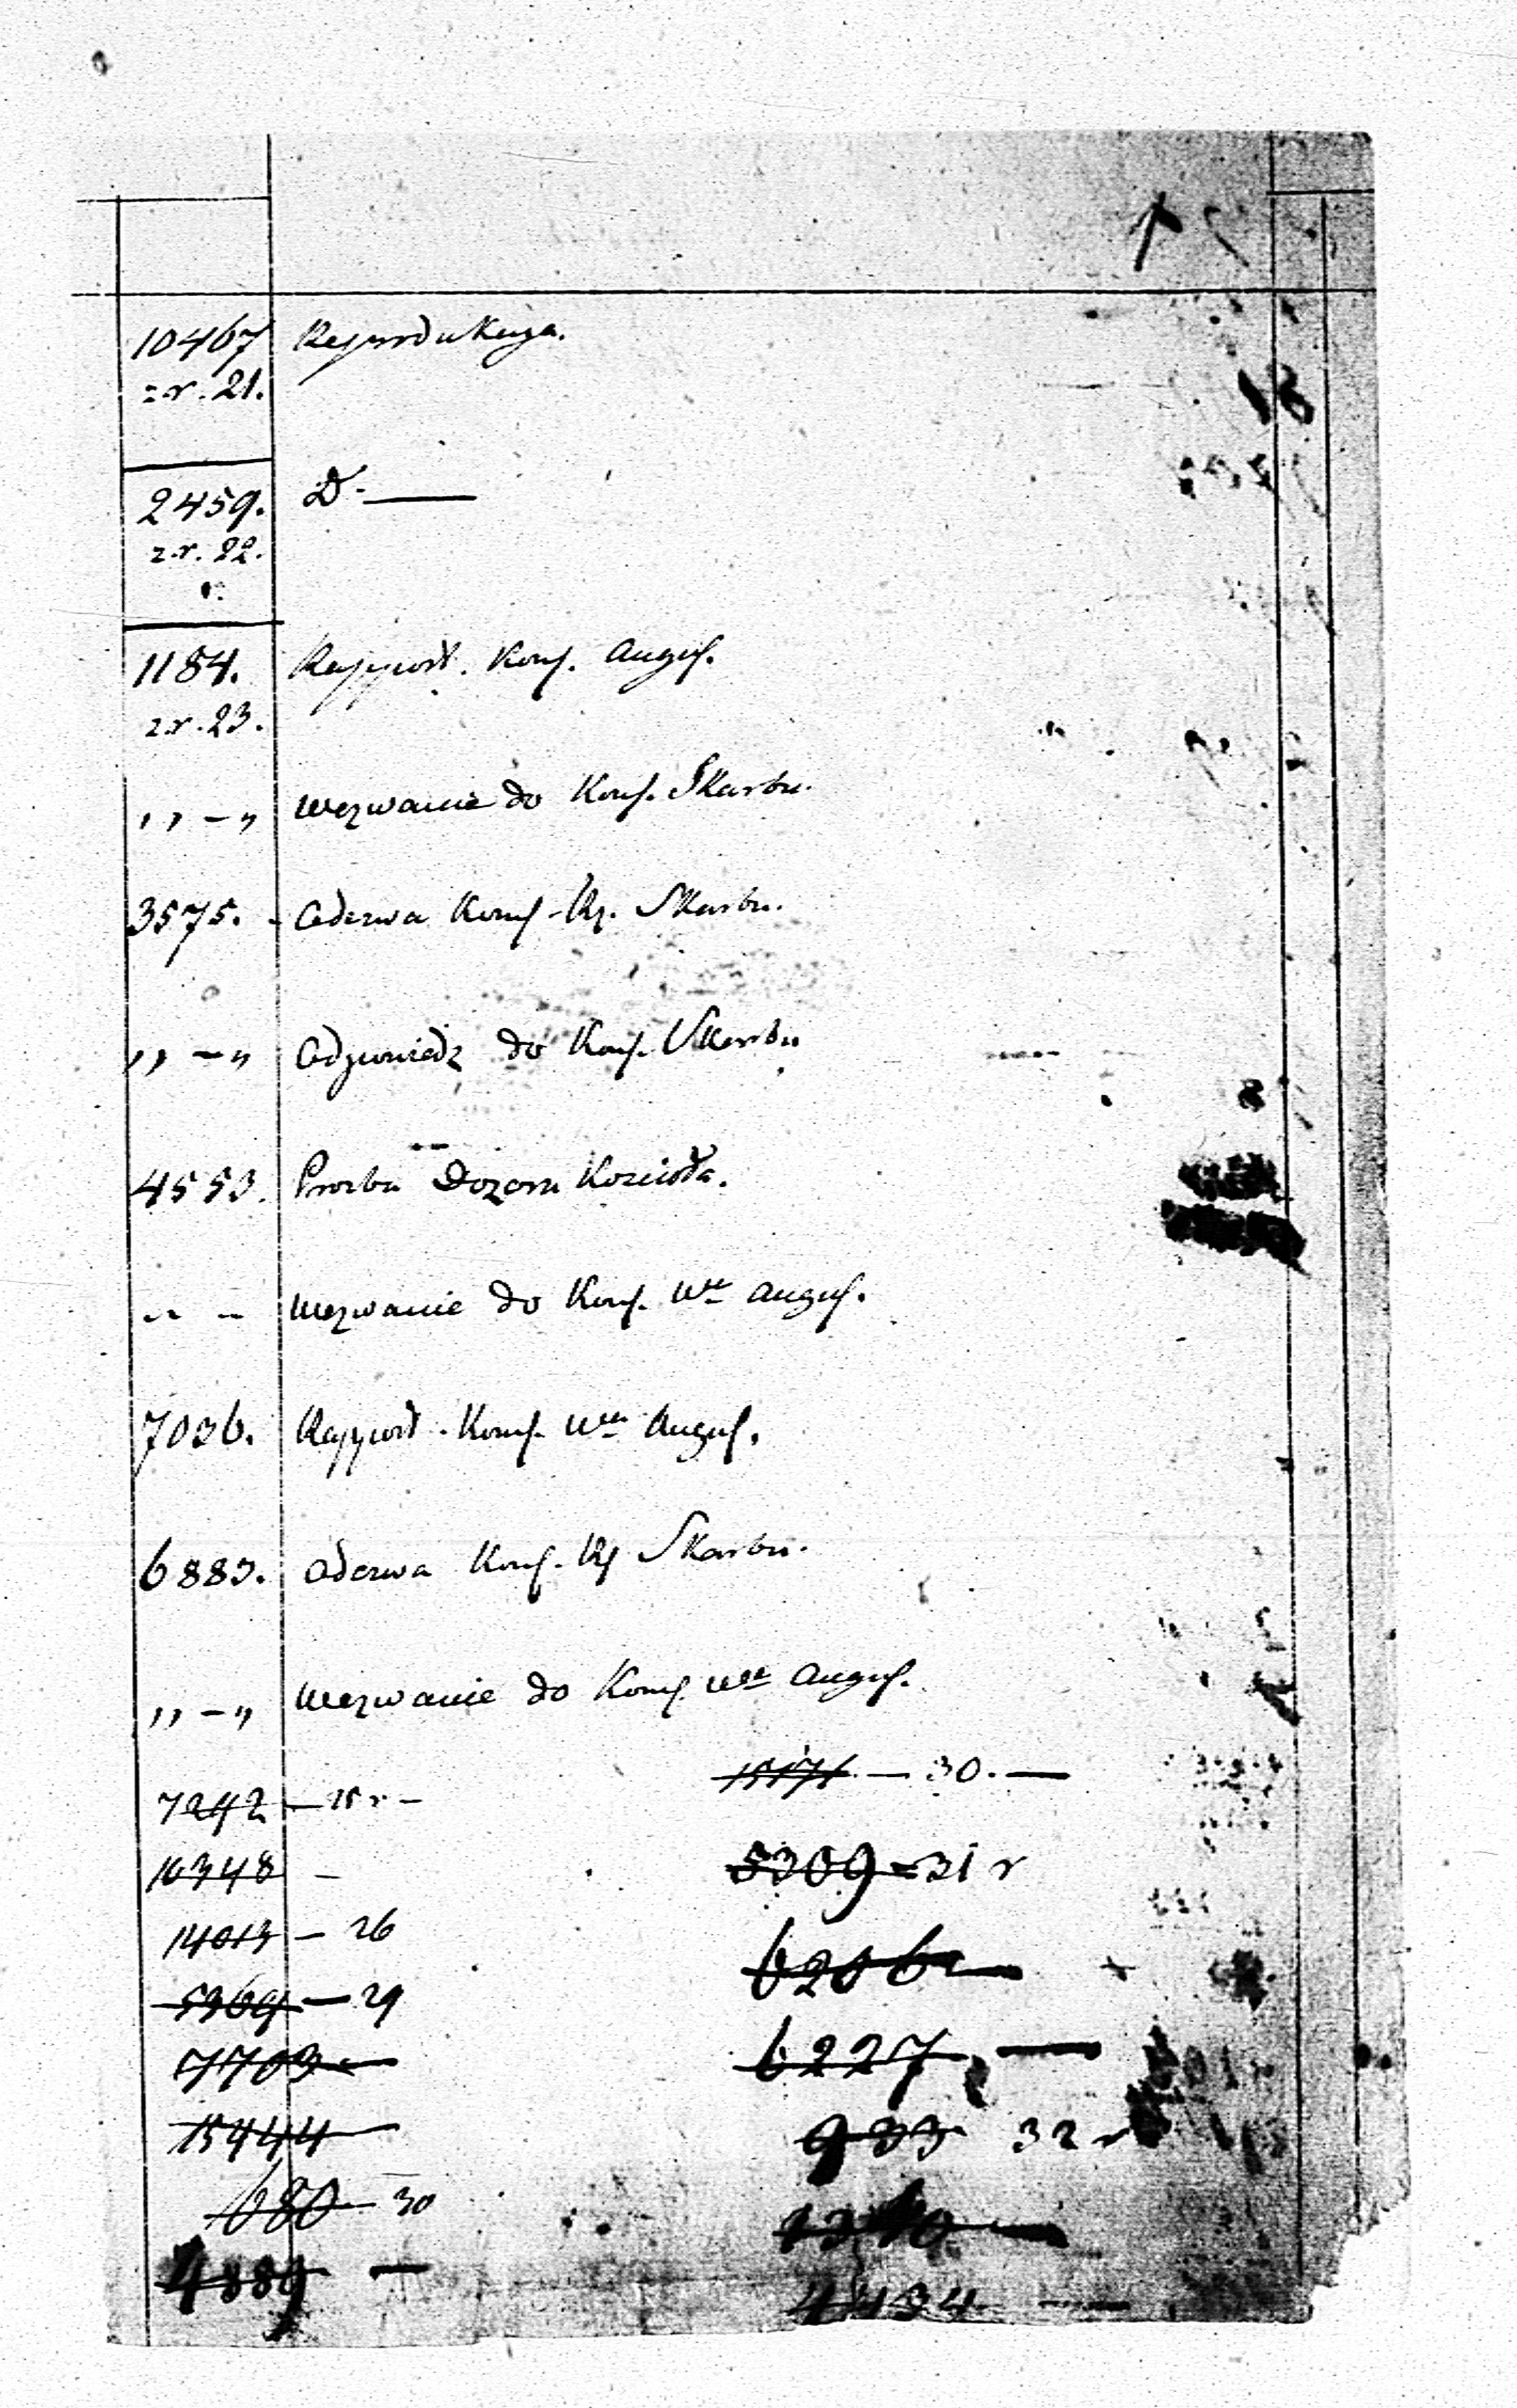 10467 Reprodukcya.
z r. 21.
2459. D° —
z r. 22.
1184. Rapport. Kom. Augus.
z r. 23.
,, — ,, Wezwanie do Kom. Skarbu.
3575. - Odezwa Kom. Rz. Skarbu.
,, — ,, Odpowiedz do Kom. Skarbu
4553. Prozba Dozoru Kościoła.
,, — ,, Wezwanie do Kom. Wa Augus.
7036. Rapport. Kom. Wa Augus.
6883. Odezwa Kom. Rz Skarbu.
,, — ,, Wezwanie do Kom. Wa Augus.
7242 — 25 r —
10348 —
14013 — 26
5369 — 29
7703 —
15444 —
680 — 30
4889 —
— 30. —
5309 = 31 r
6206 —
6227 —
933 32 r
4434 —